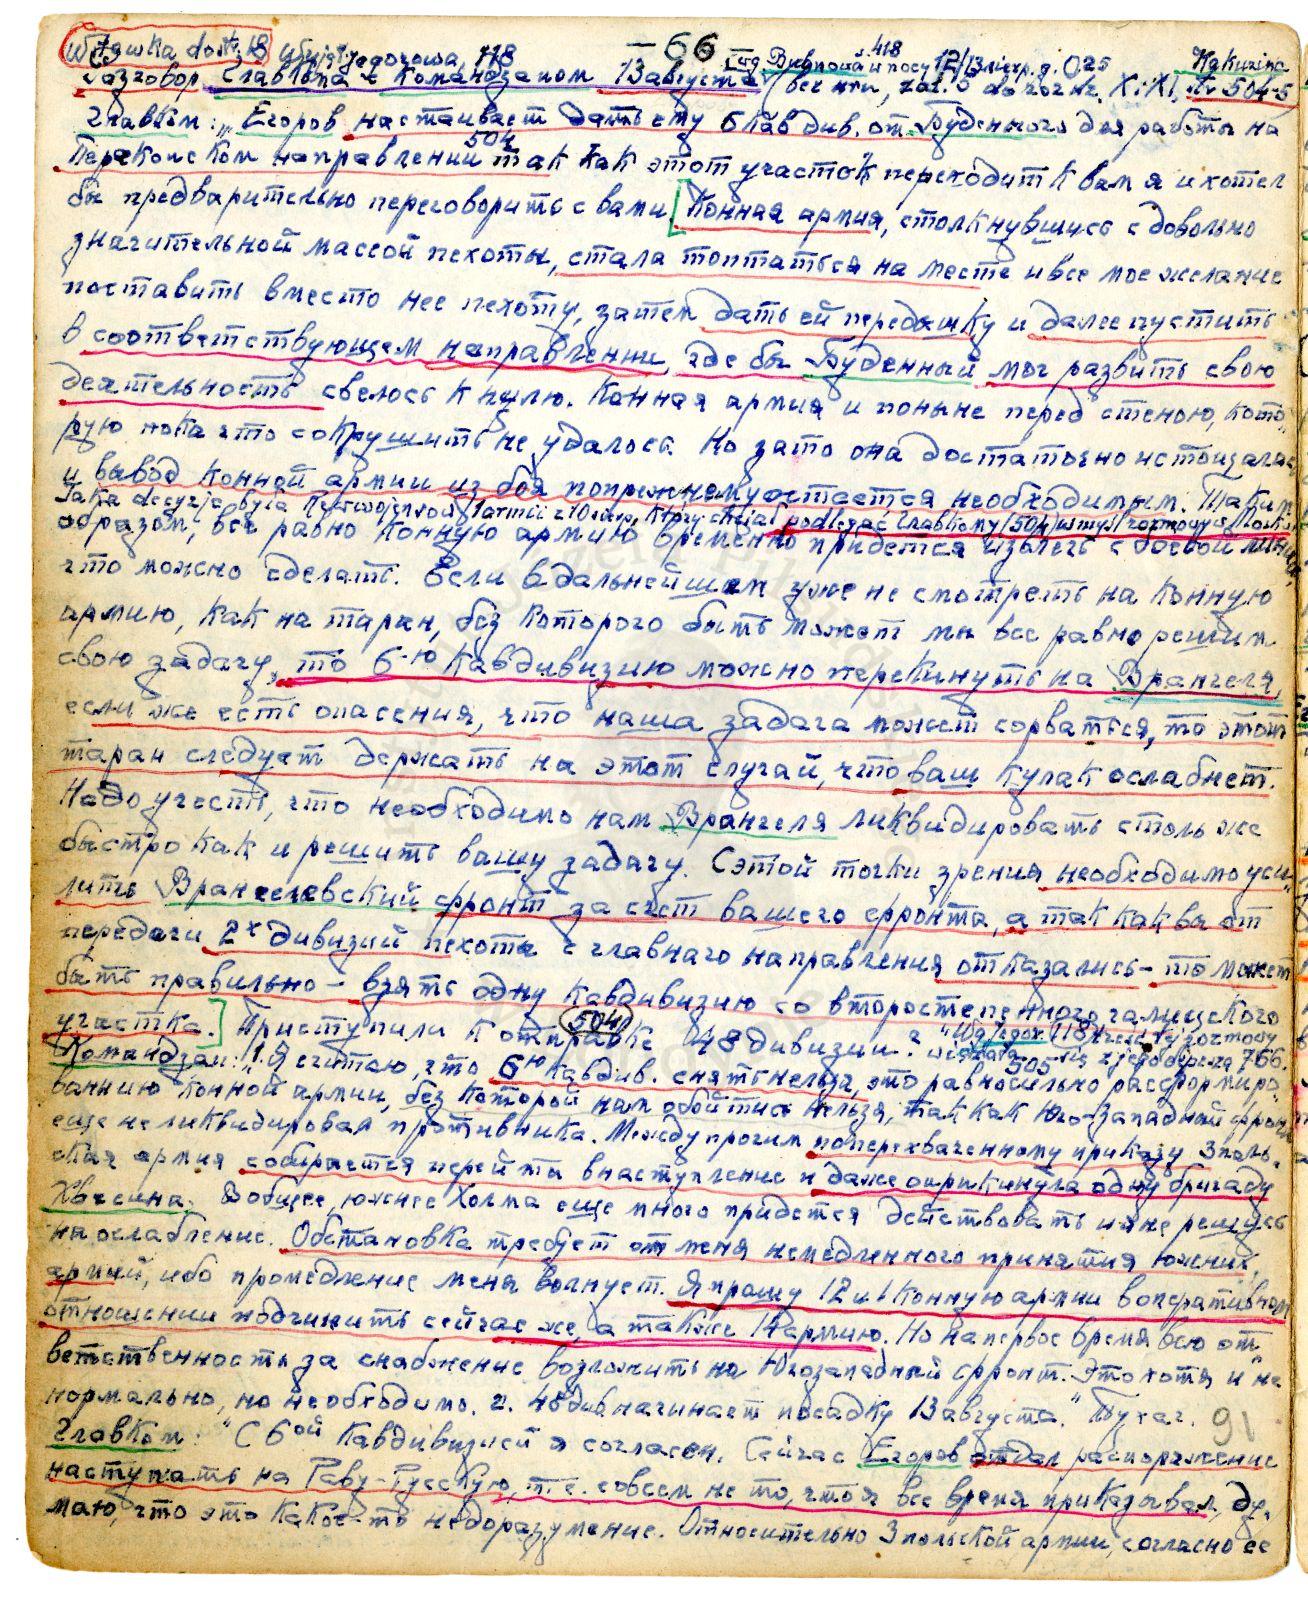 — 66
Разговор Главкома с Командзапом 13 августа
Главком: „Егоров настаивает дать ему 6 кавдив. от Буденного для работы на
504
Перекопском направлении так как этот участок переходит к вам я и хотел
бы предварительно переговорить с вами. [Конная армия, столкнувшись с довольно
значительной массой пехоты, стала топтаться на месте и все мое желание
поставить вместо нее пехоту, затем дать ей передышку и далее пустить
в соответствующем направлении, где бы Буденный мог развить свою
деятельность свелось к нулю. Конная армия и поныне перед стеною, кото-
рую пока что сокрушить не удалось. Но зато она достаточно истощалась
и вывод конной армии из боя попрежнему остается необходимым. Таким
образом, все равно конную армию временно придется извлечь с боевой линии,
что можно сделать. Если в дальнейшем уже не смотреть на конную
армию, как на таран, без которого быть может мы все равно решим
свою задачу, то 6-ю кавдивизию можно перекинуть на Врангеля,
если же есть опасения, что наша задача может сорваться, то этот
таран следует держать на этот случай, что ваш кулак ослабнет.
Надо учесть, что необходимо нам Врангеля ликвидировать столь же
быстро как и решить вашу задачу. С этой точки зрения необходимо уси-
лить Врангелевский фронт за счет вашего фронта, а так как вы от
передачи 2х дивизий пехоты с главного направления отказались – то может
быть правильно – взять одну кавдивизию со второстепенного галицского
участка.] Приступили к отправке 48 дивизии?
504
Командзап: „1. Я считаю, что 6ю кавдив. снять нельзя, это равносильно расформиро-
505
ванию конной армии, без которой нам обойтись нельзя, так как Юго-Западный фронт
еще не ликвидировал противника. Между прочим по перехваченному приказу 3 поль-
ская армия собирается перейти в наступление и даже опрокинула одну бригаду
Хвесина. Вообще, южнее Холма еще много придется действовать и я не решусь
на ослабление. Обстановка требует от меня немедленного принятия южных
армий, ибо промедление меня волнует. Я прошу 12 и 1 Конную армии в оперативном
отношении подчинить сейчас же, а также 14 армию. Но на первое время всю от-
ветственность за снабжение возложить на Югозападный фронт. Это хотя и не
нормально, но необходимо. 2. 48 див. начинает посадку 13 августа." Тухач.
91
Главком: "С 6ой кавдивизией я согласен. Сейчас Егоров отдал распоряжение
наступать на Раву-Русскую, т.е. совсем не то, что я все время приказывал, ду-
маю, что это какое-то недоразумение. Относительно 3 польской армии, согласно ее